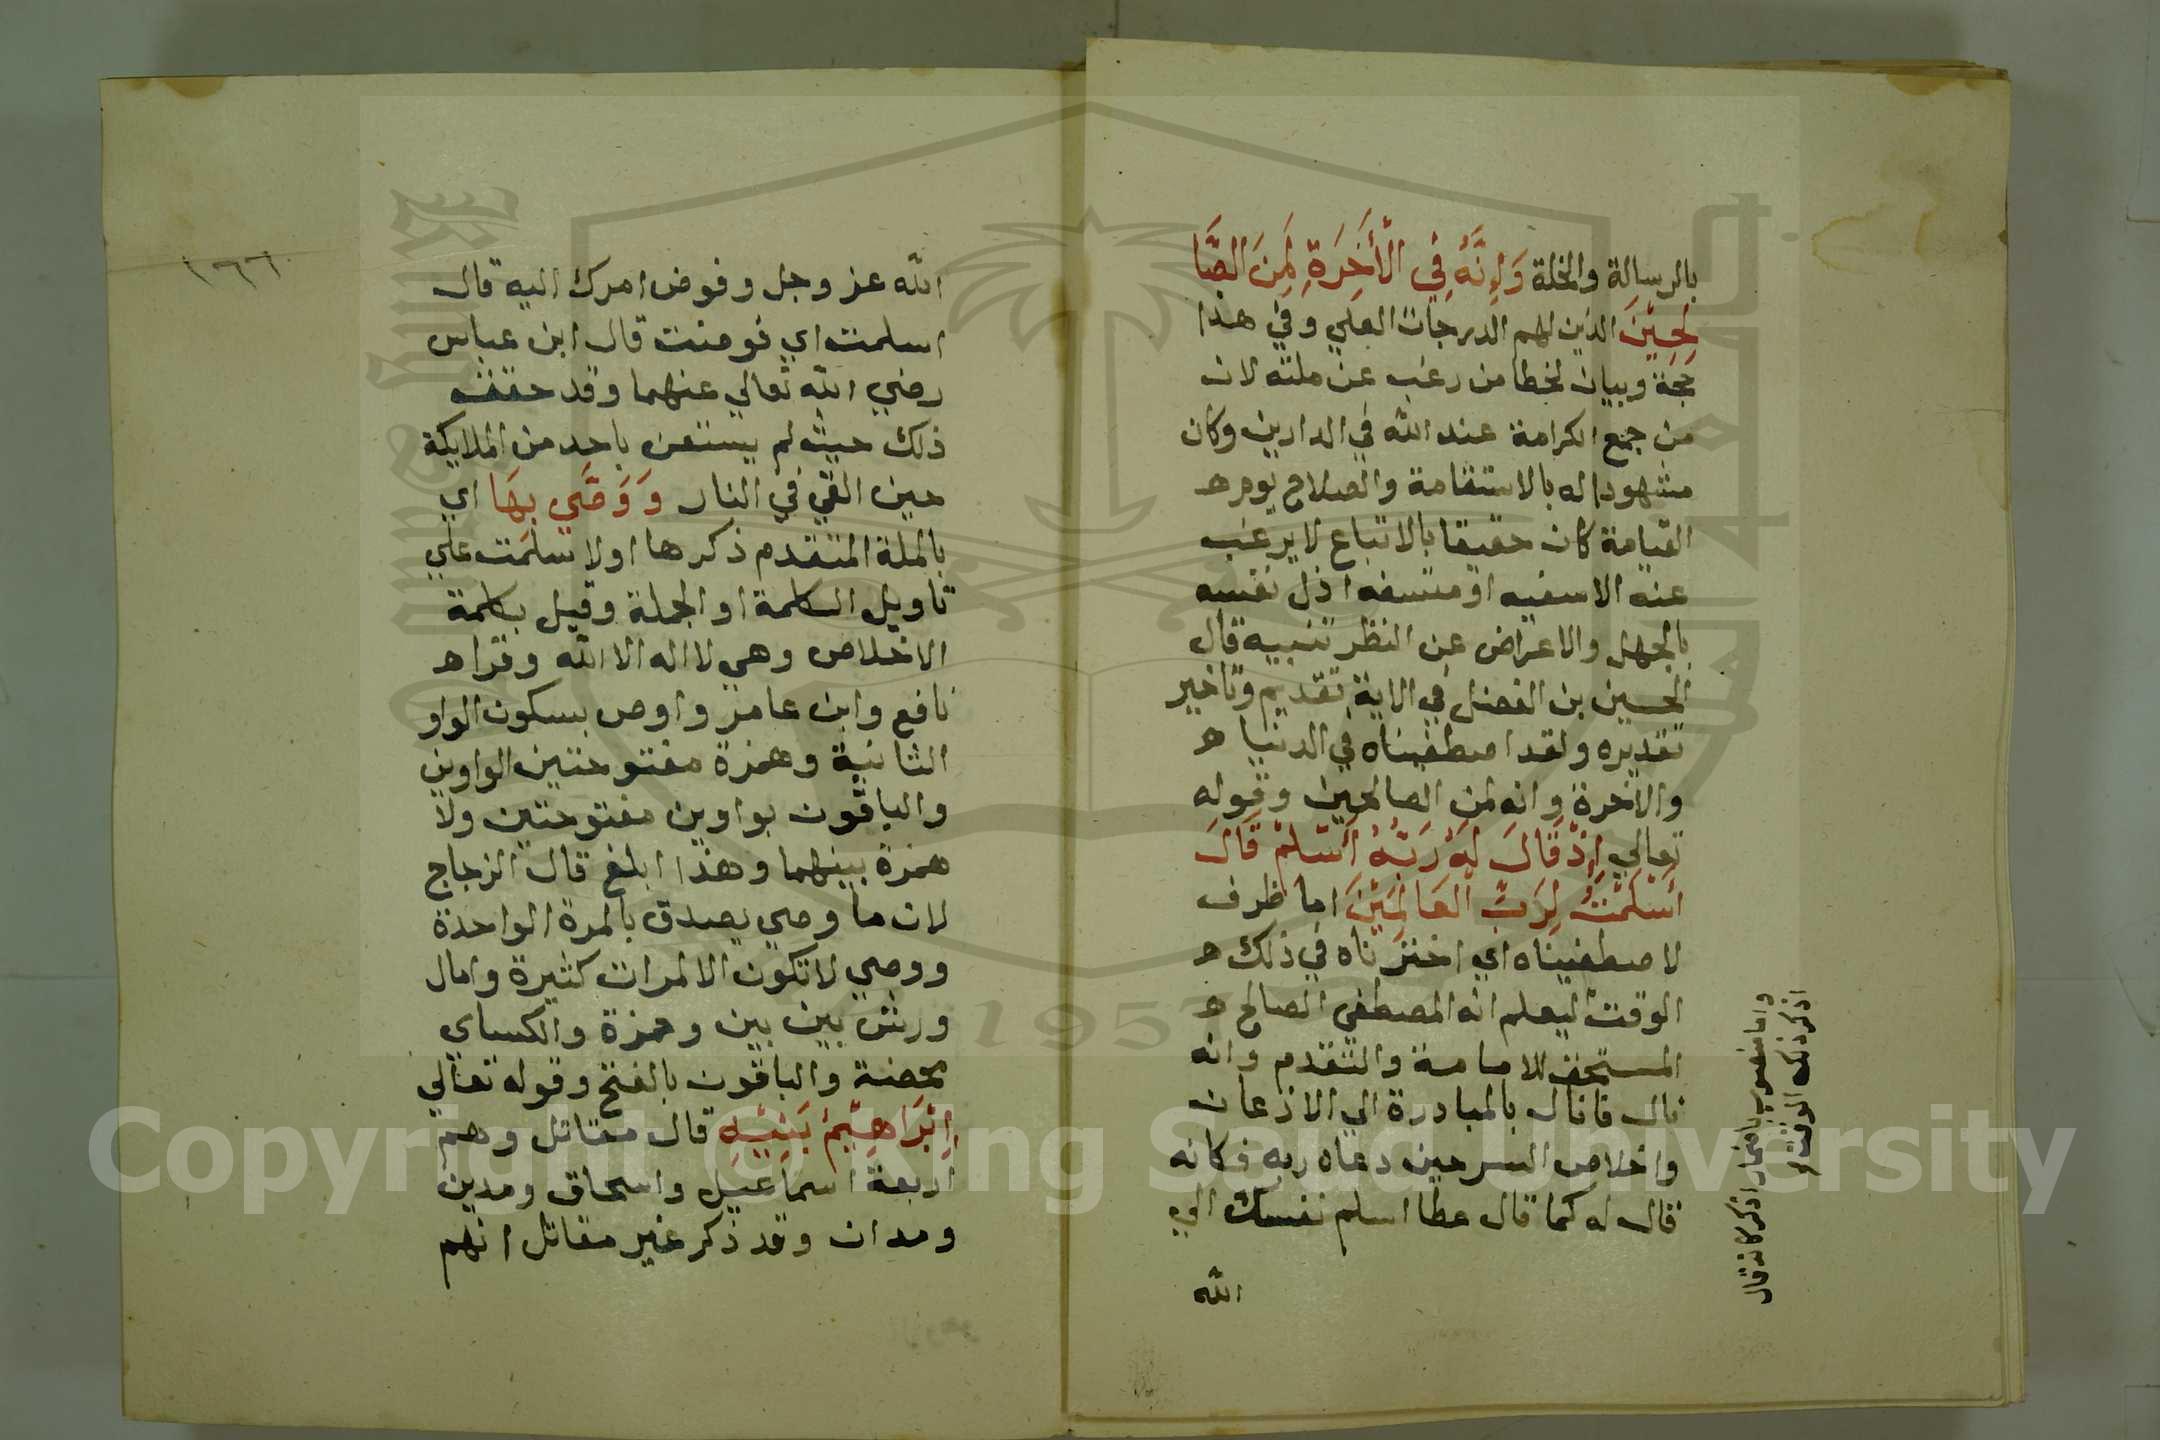 بالرسالة والخلة وَإِنَّهُ فِي الْأَخِرَةِ لَمِنَ الصَّا
لِحِيْنَ الذين لهم الدرجات العلي وفي هذا
حجة وبيان لخطا من رغب عن ملته لان
من جمع الكرامة عند الله في الدارين وكان
مشهودا له بالاستقامة والصلاح يوم هـ
القيامة كان حقيقا بالاتباع لا يرغب
عنه الا سفيه او متسفه اذل نفسه
بالجهل والاعراض عن النظر تنبيه قال
الحسين بن الفضل في الاية تقديم وتاخير
تقديره ولقد اصطفيناه في الدنيا هـ
والاخرة وانه لمن الصالحين وقوله
تعالي إِذْ قَالَ لَهُ رَبُّهُ أَسْلِمْ قَالَ
أَسْلَمْتُ لِرَبِّ الْعَالَمِيْنَ اما ظرف
لاصطفيناه اي اخترناه في ذلك هـ
الوقت ليعلم انه المصطفي الصالح هـ
المستحق للامامة والتقدم وانه
نال ما نال بالمبادرة الي الاذعان
واخلاص السر حين دعاه ربه فكانه
قال له كما قال عطا اسلم نفسك الي
الله
واما منصوب باضمار اذكر كانه قال
اذكر ذلك الوقت
١٦٦
الله عز وجل وفوض امرك اليه قال
اسلمت اي فوضت قال ابن عباس
رضي الله تعالي عنهما وقد حقق
ذلك حيث لم يستعن باحد من الملايكة
حين القي في النار وَوَصَّي بِهَا اي
بالملة المتقدم ذكرها او لاسلمت علي
تاويل الكلمة او الجملة وقيل بكلمة
الاخلاص وهي لا اله الا الله وقرا هـ
نافع وابن عامر واوص بسكون الواو
الثانية وهمزة مفتوحتين الواوين
والباقون بواوين مفتوحتين ولا
همزة بينهما وهذا ابلغ قال الزجاج
لان ما وصي يصدق بالمرة الواحدة
ووصي لا تكون الا لمرات كثيرة وامال
ورش بين بين وحمزة والكساي
محضة والباقون بالفتح وقوله تعالي
إِبْرَاهِيْمُ بَنِيْهِ قال مقاتل وهم
اربعة اسماعيل واسحاق ومدين
ومدان وقد ذكر غير مقاتل انهم
King Saud University
1957
Copyright © King Saud University